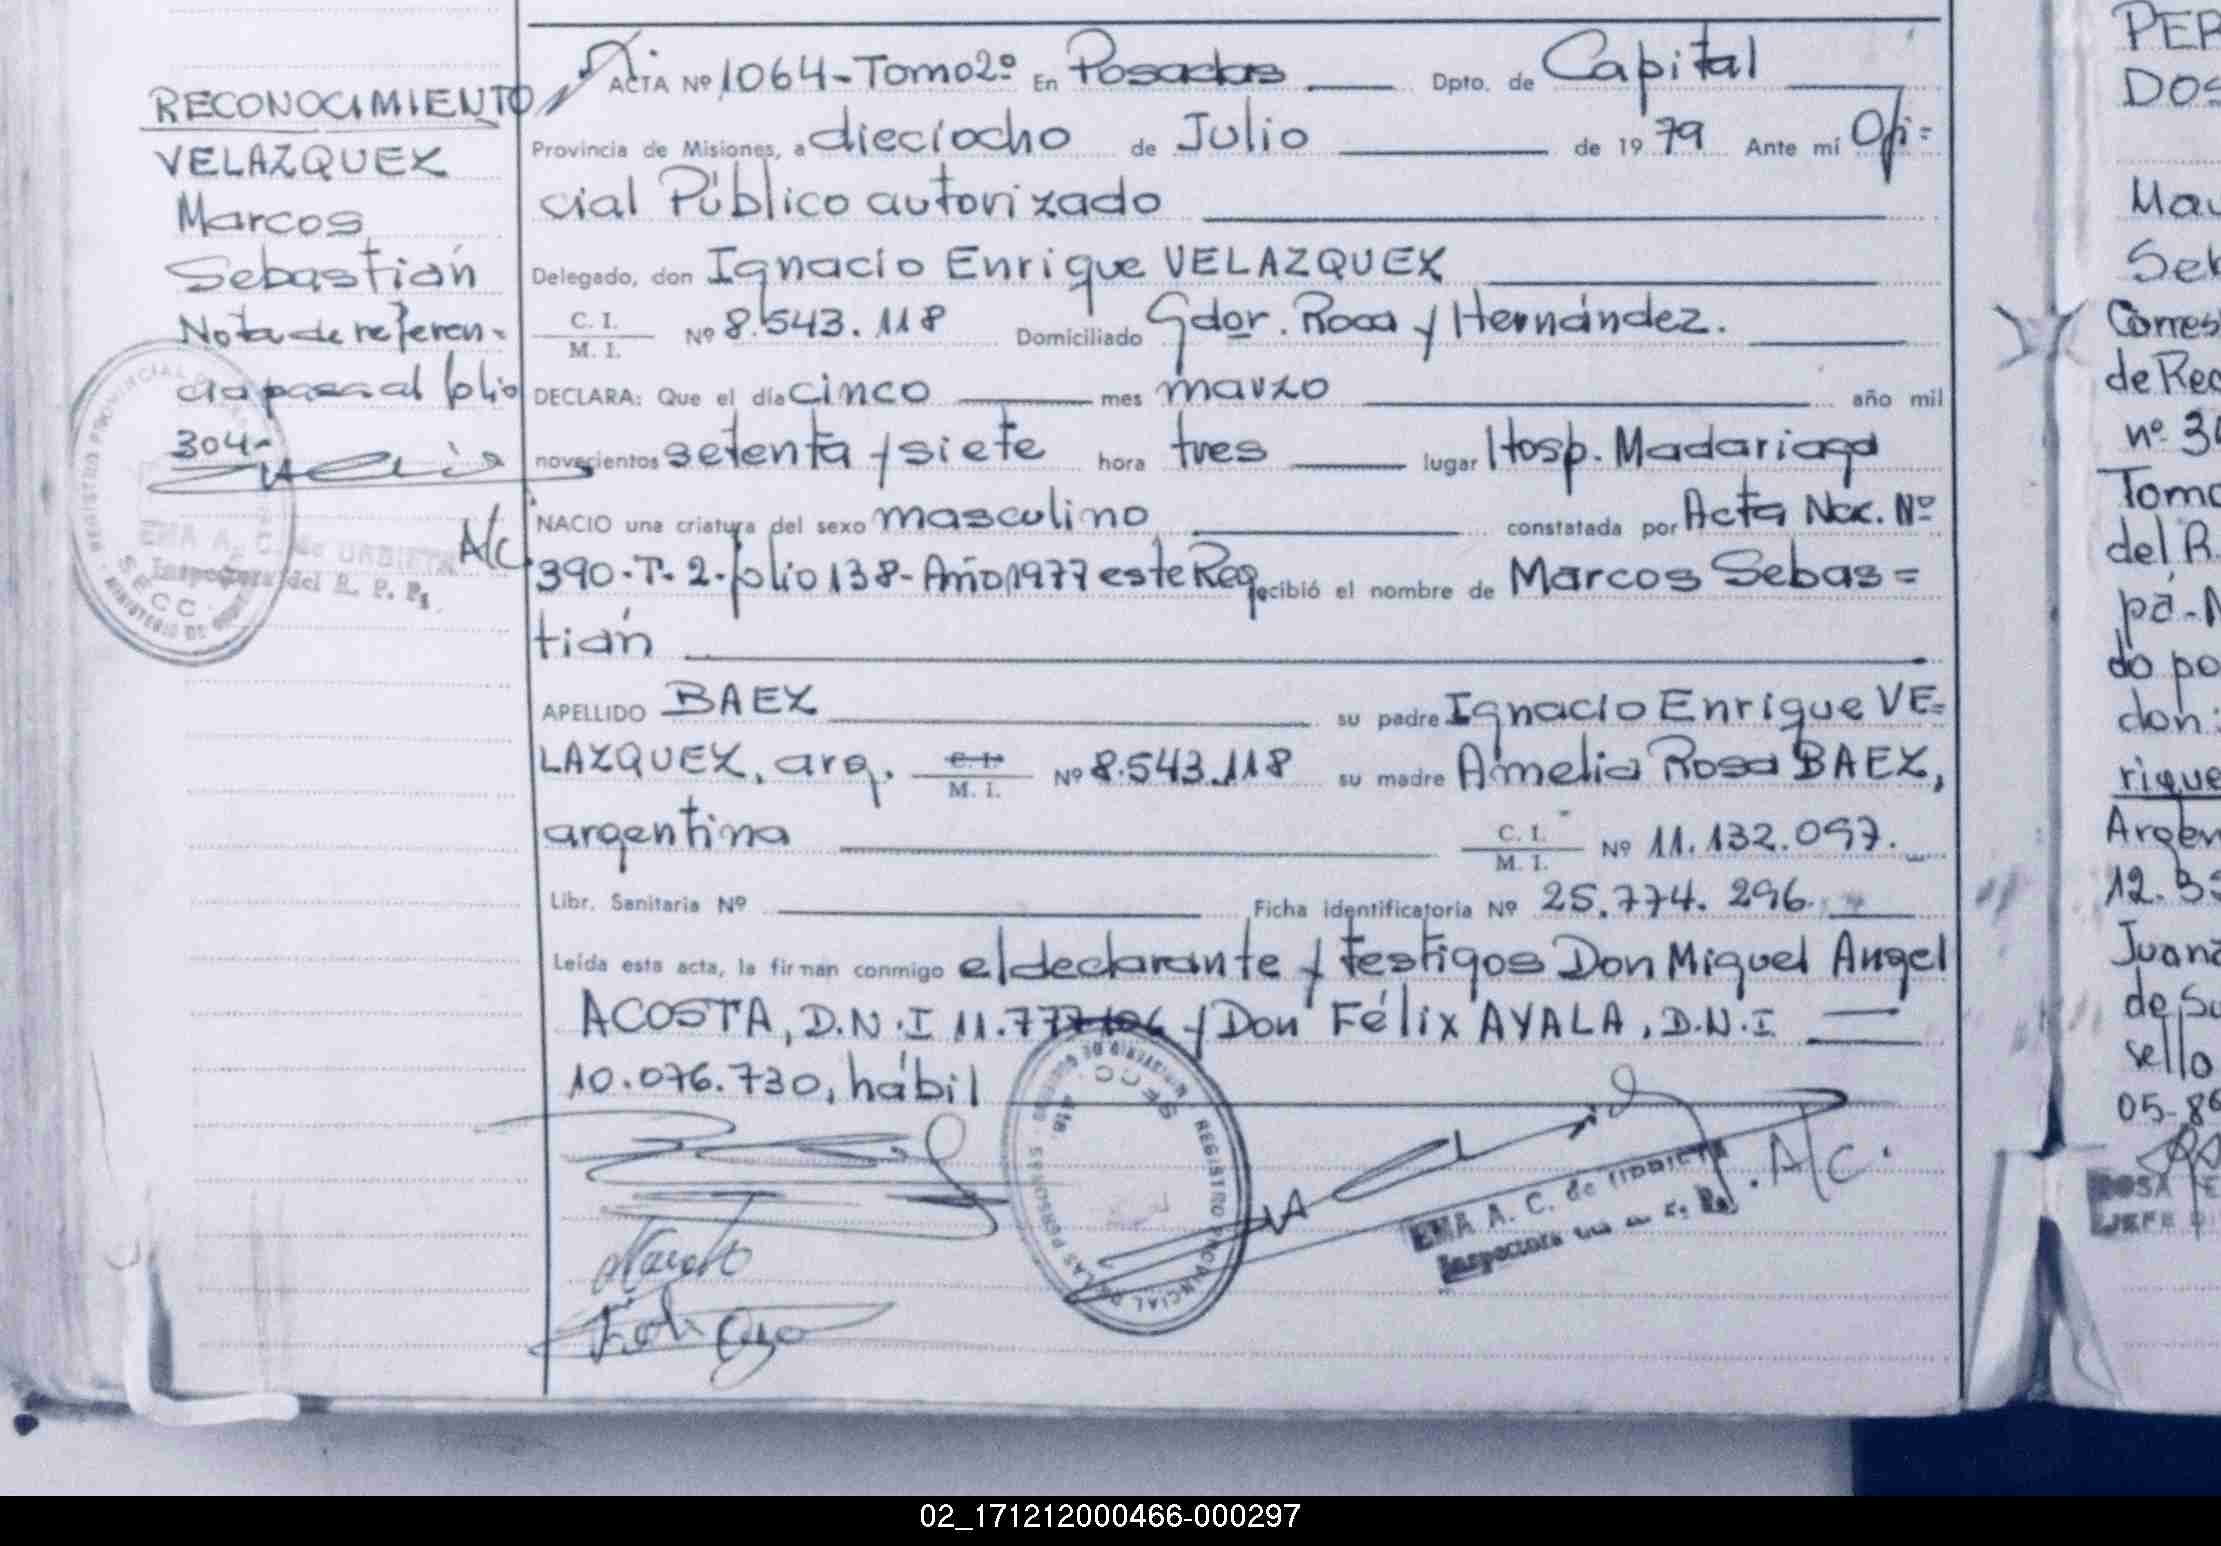 RECONOCIMIENTO
VELAZQUEZ
Marcos
Sebastián
Nota de referen-
cia pasa al folio
304-
A/c.
EMA A. C. de URBIETA
Inspectora del R. P. P.
ACTA Nº 1064-Tomo 2º En Posadas Dpto. de Capital
Provincia de Misiones, a dieciocho de Julio de 1979 Ante mi Ofi=
cial Público autorizado
Delegado, don Ignacio Enrique VELAZQUEZ
C. I. / M. I. Nº 8.543.118 Domiciliado Gdor. Roca y Hernández.
DECLARA: Que el día cinco mes marzo año mil
novecientos setenta y siete hora tres lugar Hosp. Madariaga
NACIO una criatura del sexo masculino constatada por Acta Nac. Nº
390-T-2-folio 138-Año 1977 este Reg ecibió el nombre de Marcos Sebas=
tián
APELLIDO BAEZ su padre Ignacio Enrique VE=
LAZQUEZ, arg. C. I. / M. I. Nº 8.543.118 su madre Amelia Rosa BAEZ,
argentina C. I. / M. I. Nº 11.132.097.
Libr. Sanitaria Nº Ficha identificatoria Nº 25.774.296.
Leída esta acta, la firman conmigo el declarante y testigos Don Miguel Angel
ACOSTA, D.N.I 11.777.106 y Don Félix AYALA, D.N.I
10.076.730, hábil
REGISTRO PROVINCIAL DE LAS PERSONAS
SECC
EMA A. C. de URBIETA
Inspectora
A/C.
PER
DOS
Mar
Seb
Corres
de Rec
nº 30
Tomo
del R.
pá-N
do po
don:
rique
Argen
12.35
Juana
de Su
sello
05-86
ROSA
JEFE
02_171212000466-000297